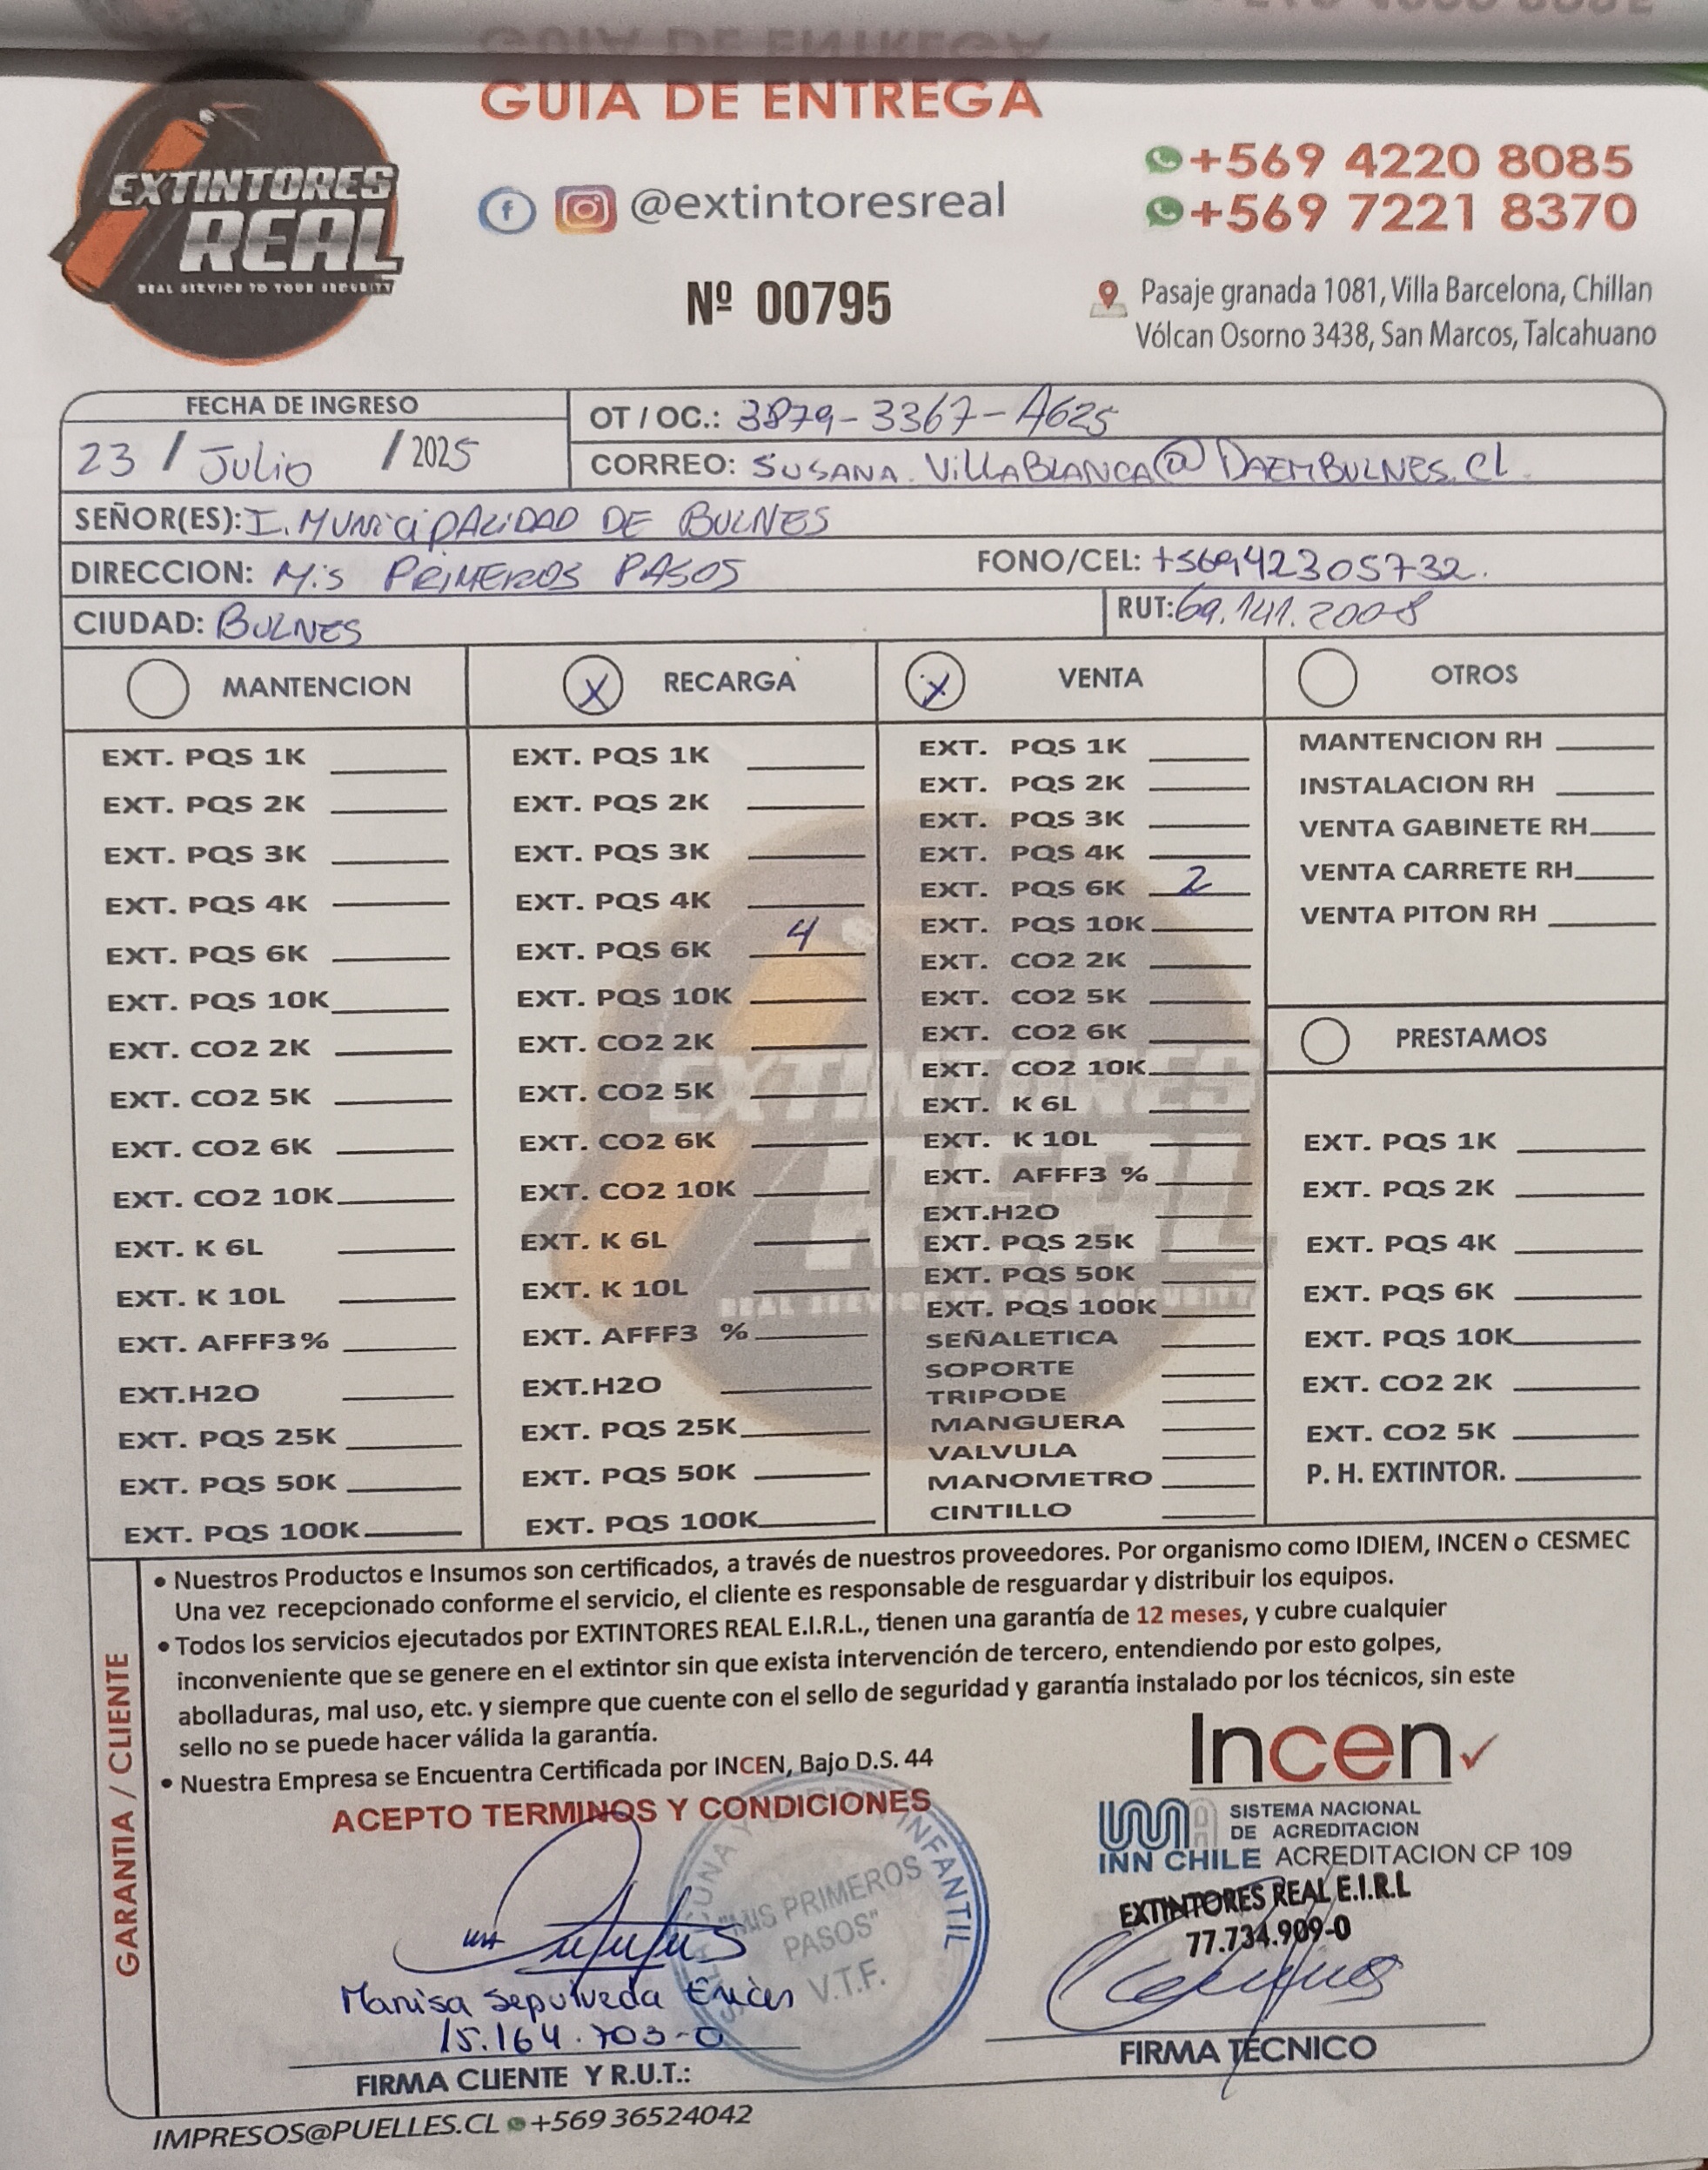 GUIA DE ENTREGA
EXTINTORES
REAL
REAL SERVICE TO YOUR SECURITY
@extintoresreal
+569 4220 8085
+569 7221 8370
Nº 00795
Pasaje granada 1081, Villa Barcelona, Chillan
Vólcan Osorno 3438, San Marcos, Talcahuano
FECHA DE INGRESO
23 / Julio / 2025
OT / OC.: 3879-3367-AG25
CORREO: SUSANA.VILLABLANCA@DAEMBULNES.CL
SEÑOR(ES): I. MUNICIPALIDAD DE BULNES
DIRECCION: Mis PRIMEROS PASOS FONO/CEL: +56942305732.
CIUDAD: BULNES RUT: 69.141.200-8
MANTENCION
EXT. PQS 1K
EXT. PQS 2K
EXT. PQS 3K
EXT. PQS 4K
EXT. PQS 6K
EXT. PQS 10K
EXT. CO2 2K
EXT. CO2 5K
EXT. CO2 6K
EXT. CO2 10K
EXT. K 6L
EXT. K 10L
EXT. AFFF3%
EXT.H2O
EXT. PQS 25K
EXT. PQS 50K
EXT. PQS 100K
X RECARGA
EXT. PQS 1K
EXT. PQS 2K
EXT. PQS 3K
EXT. PQS 4K
EXT. PQS 6K 4
EXT. PQS 10K
EXT. CO2 2K
EXT. CO2 5K
EXT. CO2 6K
EXT. CO2 10K
EXT. K 6L
EXT. K 10L
EXT. AFFF3 %
EXT.H2O
EXT. PQS 25K
EXT. PQS 50K
EXT. PQS 100K
X VENTA
EXT. PQS 1K
EXT. PQS 2K
EXT. PQS 3K
EXT. PQS 4K
EXT. PQS 6K 2
EXT. PQS 10K
EXT. CO2 2K
EXT. CO2 5K
EXT. CO2 6K
EXT. CO2 10K
EXT. K 6L
EXT. K 10L
EXT. AFFF3 %
EXT.H2O
EXT. PQS 25K
EXT. PQS 50K
EXT. PQS 100K
SEÑALETICA
SOPORTE
TRIPODE
MANGUERA
VALVULA
MANOMETRO
CINTILLO
OTROS
MANTENCION RH
INSTALACION RH
VENTA GABINETE RH
VENTA CARRETE RH
VENTA PITON RH
PRESTAMOS
EXT. PQS 1K
EXT. PQS 2K
EXT. PQS 4K
EXT. PQS 6K
EXT. PQS 10K
EXT. CO2 2K
EXT. CO2 5K
P. H. EXTINTOR.
GARANTIA / CLIENTE
• Nuestros Productos e Insumos son certificados, a través de nuestros proveedores. Por organismo como IDIEM, INCEN o CESMEC
Una vez recepcionado conforme el servicio, el cliente es responsable de resguardar y distribuir los equipos.
• Todos los servicios ejecutados por EXTINTORES REAL E.I.R.L., tienen una garantía de 12 meses, y cubre cualquier
inconveniente que se genere en el extintor sin que exista intervención de tercero, entendiendo por esto golpes,
abolladuras, mal uso, etc. y siempre que cuente con el sello de seguridad y garantía instalado por los técnicos, sin este
sello no se puede hacer válida la garantía.
• Nuestra Empresa se Encuentra Certificada por INCEN, Bajo D.S. 44
ACEPTO TERMINOS Y CONDICIONES
Incen
SISTEMA NACIONAL
DE ACREDITACION
INN CHILE ACREDITACION CP 109
INFANTIL
"MIS PRIMEROS
PASOS"
V.T.F.
EXTINTORES REAL E.I.R.L
77.734.909-0
Marisa Sepulveda
15.164.703-0
FIRMA CLIENTE Y R.U.T.:
FIRMA TÉCNICO
IMPRESOS@PUELLES.CL +569 36524042